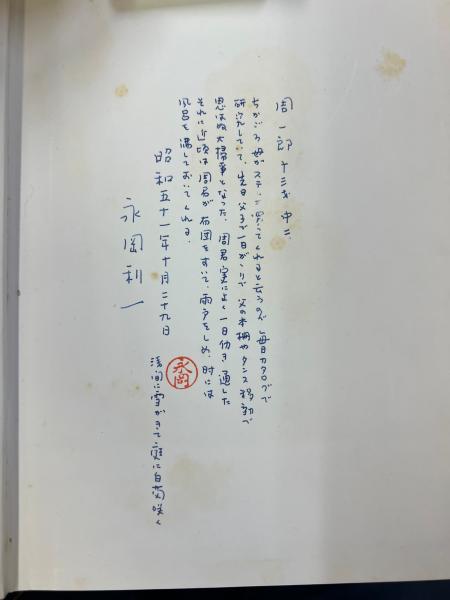 周一郎 十三才 中二
ちかごろ 母がステレオ買ってくれると云うので 毎日カタログで
研究していて、先日父子で一日がかりで 父の本棚やタンス移動で
思はぬ大掃事となった、周君実によく一日仂き通した
それに近頃は周君が布団をすいて、雨戸をしめ、時には
風呂を湧しておいてくれる、
昭和五十一年十月二十九日
浅間に雪がきて庭に白菊咲く
永岡利一
永岡